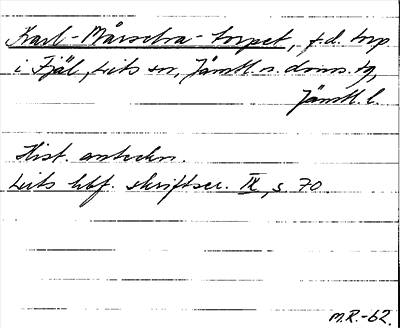 Karl-Mårsetra-torpet, f.d. torp
i Fjäl, Lits sn, Jämtl. n. doms. tg,
Jämtl. l.
Hist. anteckn.
Lits hbf. skriftser. IX, s. 70.
M.R.-62.